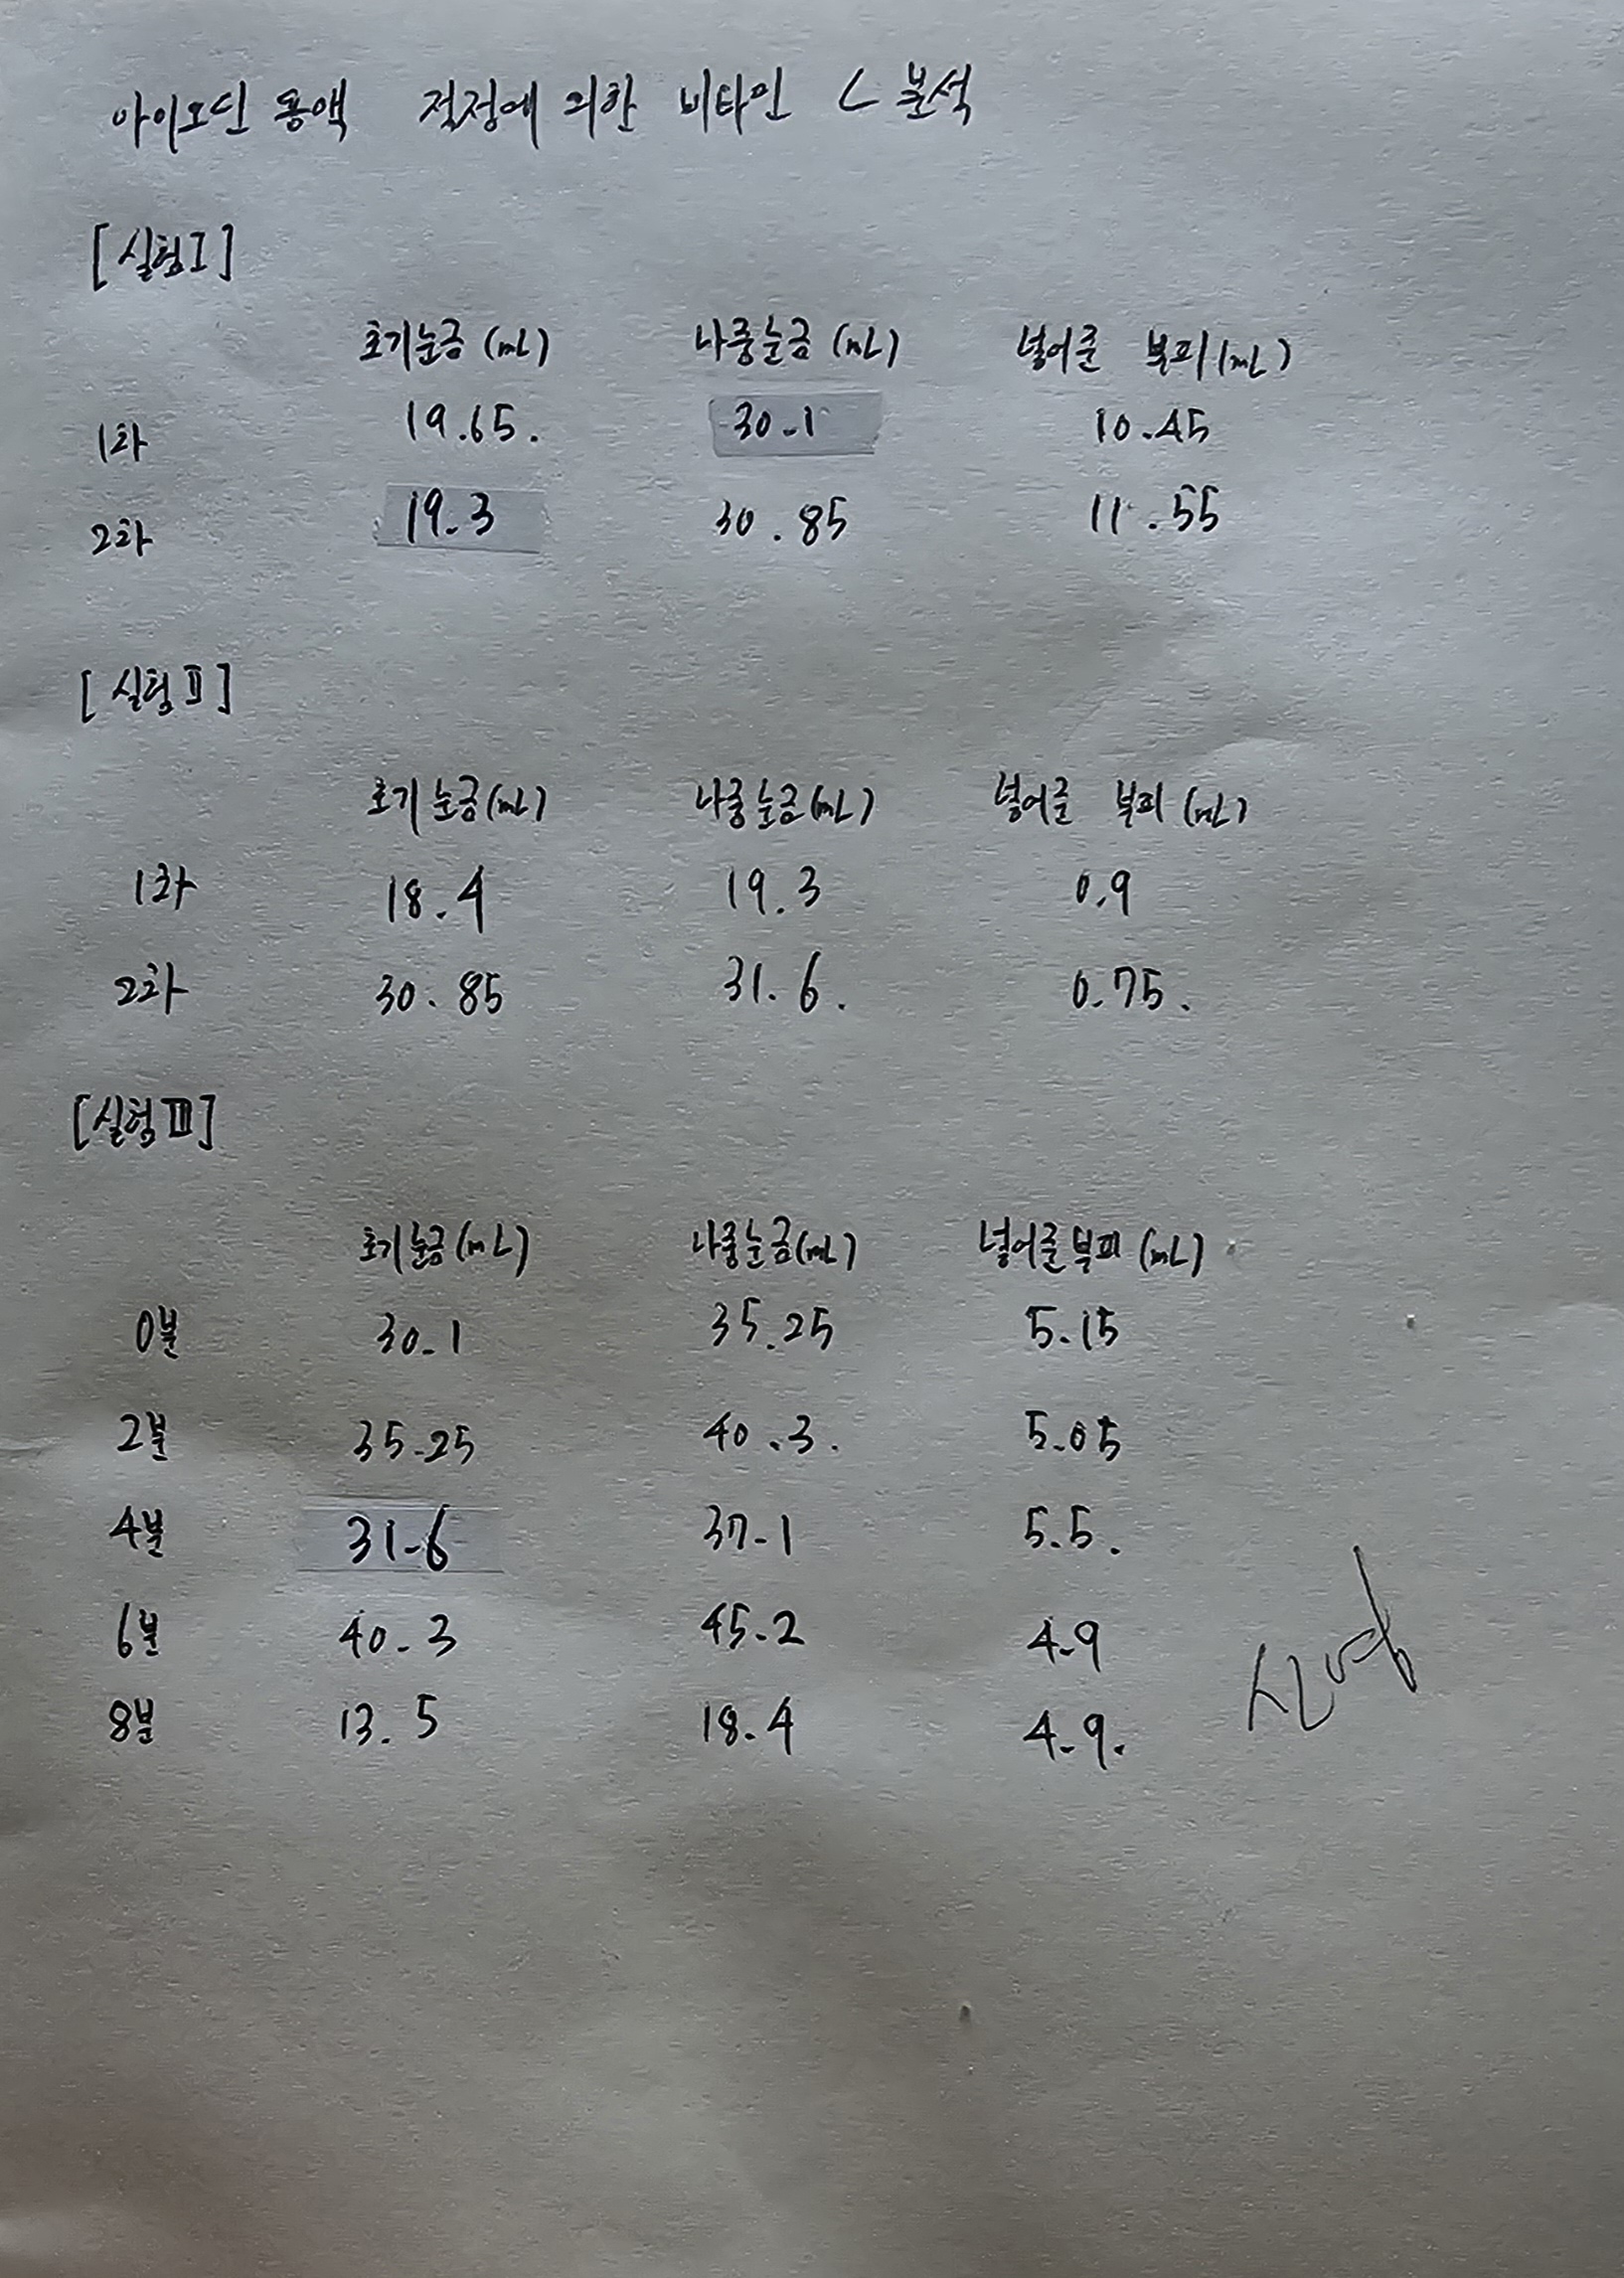 아이오딘 용액 적정에 의한 비타민 C 분석
[실험 I]
초기눈금 (mL) 나중눈금 (mL) 넣어준 부피 (mL)
1차 19.65. 30.1 10.45
2차 19.3 30.85 11.55
[실험 II]
초기 눈금(mL) 나중눈금(mL) 넣어준 부피 (mL)
1차 18.4 19.3 0.9
2차 30.85 31.6. 0.75.
[실험 III]
초기눈금(mL) 나중눈금(mL) 넣어준부피 (mL)
0분 30.1 35.25 5.15
2분 35.25 40.3. 5.05
4분 31.6 37.1 5.5.
6분 40.3 45.2 4.9
8분 13.5 18.4 4.9.